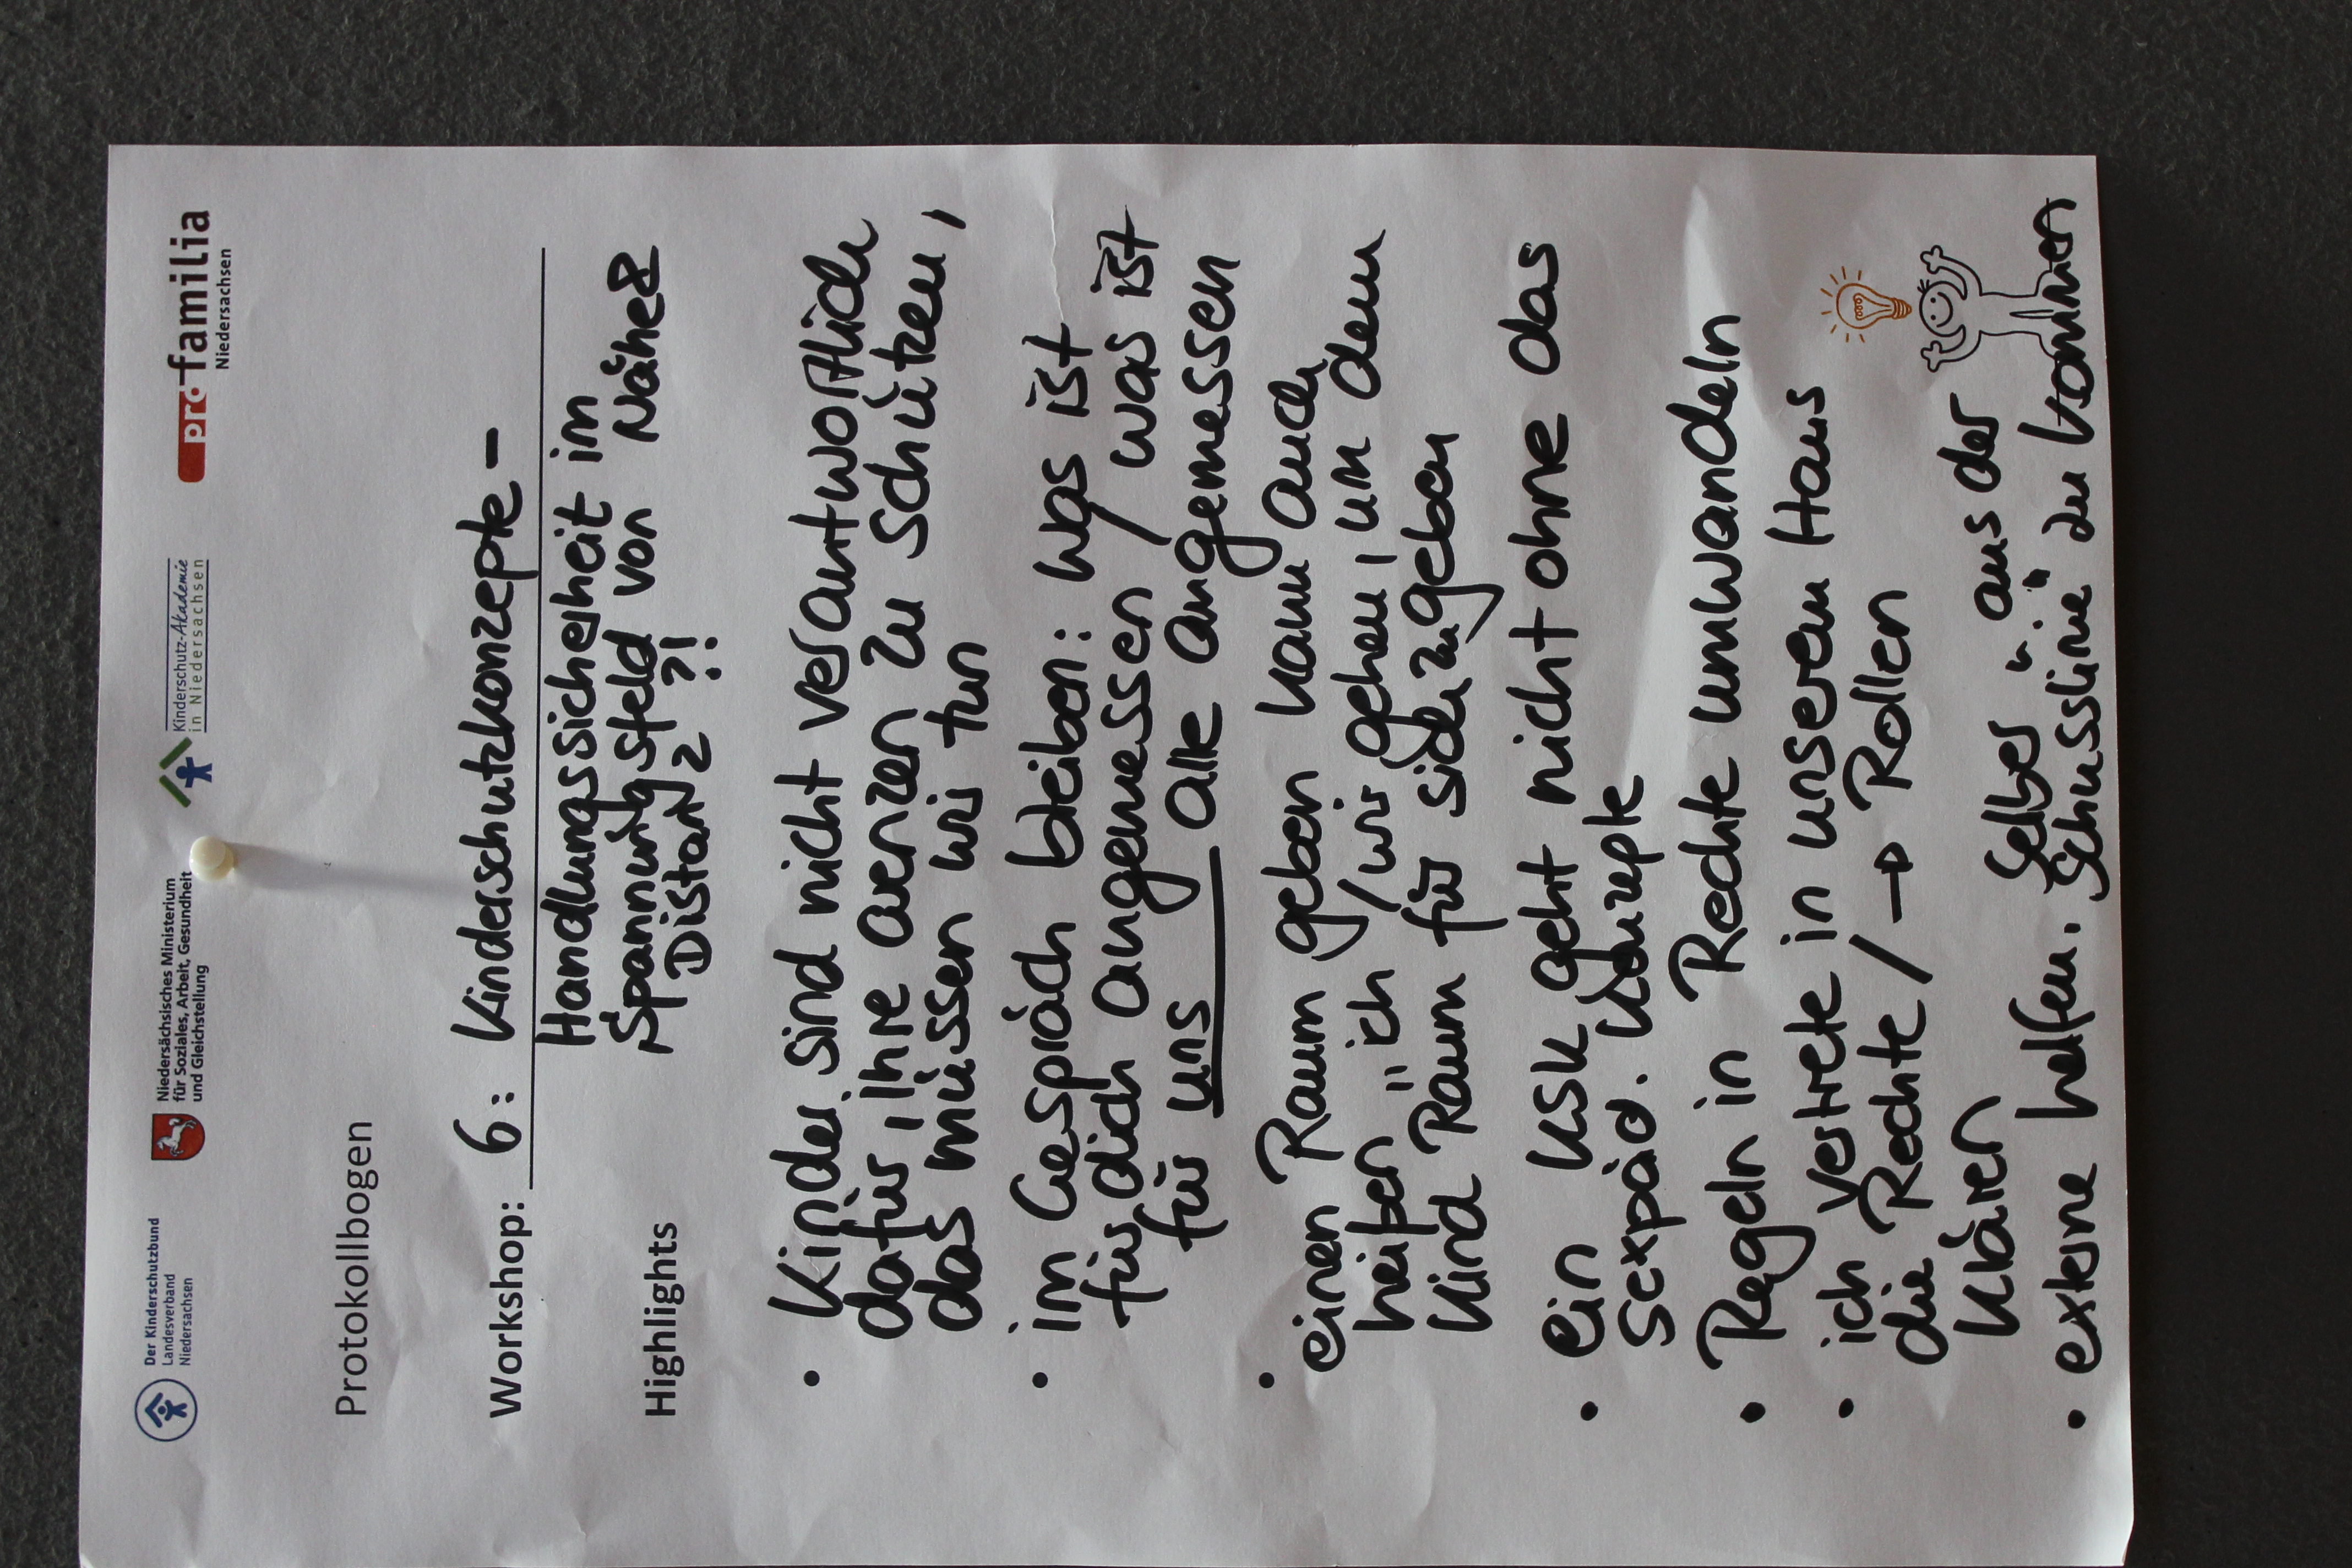 Der Kinderschutzbund
Landesverband
Niedersachsen
Niedersächsisches Ministerium
für Soziales, Arbeit, Gesundheit
und Gleichstellung
Kinderschutz-Akademie
in Niedersachsen
pro familia
Niedersachsen
Protokollbogen
Workshop: 6: Kinderschutzkonzepte -
Handlungssicherheit im
Spannungsfeld von Nähe &
Distanz ?!
Highlights
• Kinder sind nicht verantwortlich
dafür, ihre Grenzen zu schützen,
das müssen wir tun
• im Gespräch bleiben: was ist
für dich angemessen / was ist
für uns alle angemessen
• einen Raum geben kann auch
heißen "ich / wir gehen, um dem
Kind Raum für sich zu geben
• ein KSK geht nicht ohne das
sexpäd. Konzepte
• Regeln in Rechte umwandeln
• ich vertrete in unserem Haus
die Rechte / → Rollen
klären
• externe helfen. selber "aus der
Schusslinie" zu kommen